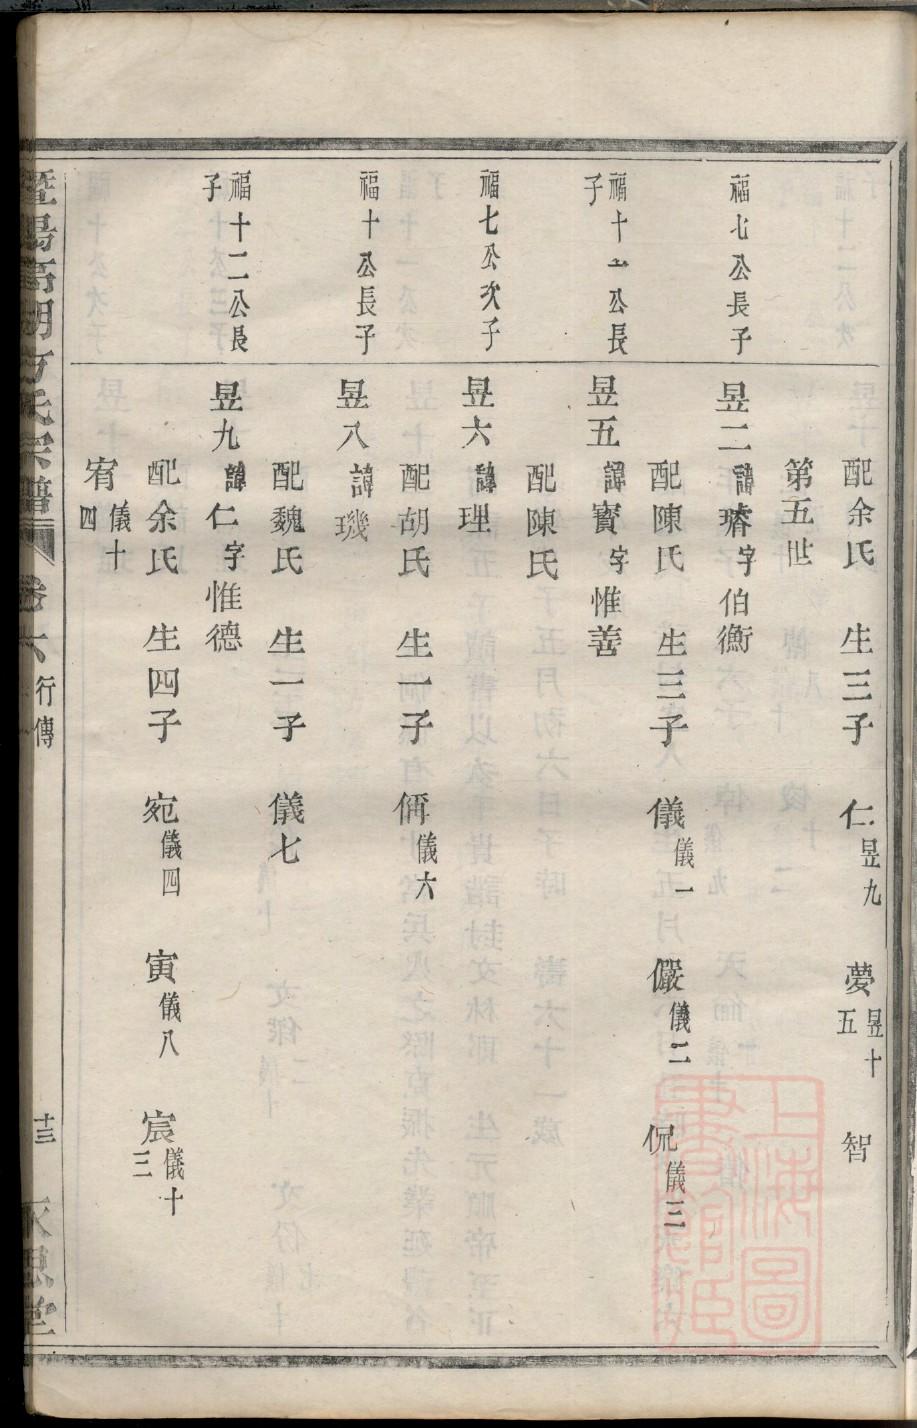 配余氏　生三子　仁昱九　夢昱十五　智
第五世
福七公長子　昱二諱璾字伯衡
配陳氏　生三子　儀儀一　儼儀二　侃儀三
福十一公長子　昱五諱寶字惟善
配陳氏
福七公次子　昱六諱理
配胡氏　生一子　侢儀六
福十公長子　昱八諱璣
配魏氏　生一子　儀七
福十二公長子　昱九諱仁字惟德
配余氏　生四子　宛儀四　寅儀八　宸儀十三
宥儀十四
宗譜　卷六　行傳　十三
上海圖書館藏